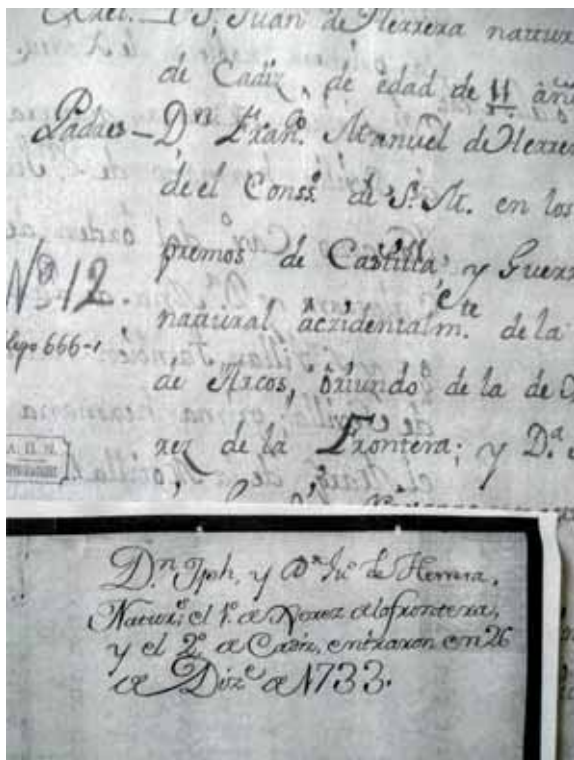 D. Juan de Herrera natur
de Cadiz, de edad de 11 añ
Padres – Dn Franco. Manuel de Herre
de el Conso. de S. M. en los
premos de Castilla, y Guerr
Nº 12.
natural accidentalmte. de la
666-1
de Arcos, oriundo de la de
rez de la Frontera; y D.a
Dn. Jph. y Dn Ju.o de Herrera,
Natur.s el 1.o de Xerez de la frontera,
y el 2.o de Cadiz, entraron en 26
de Diz.e de 1733.